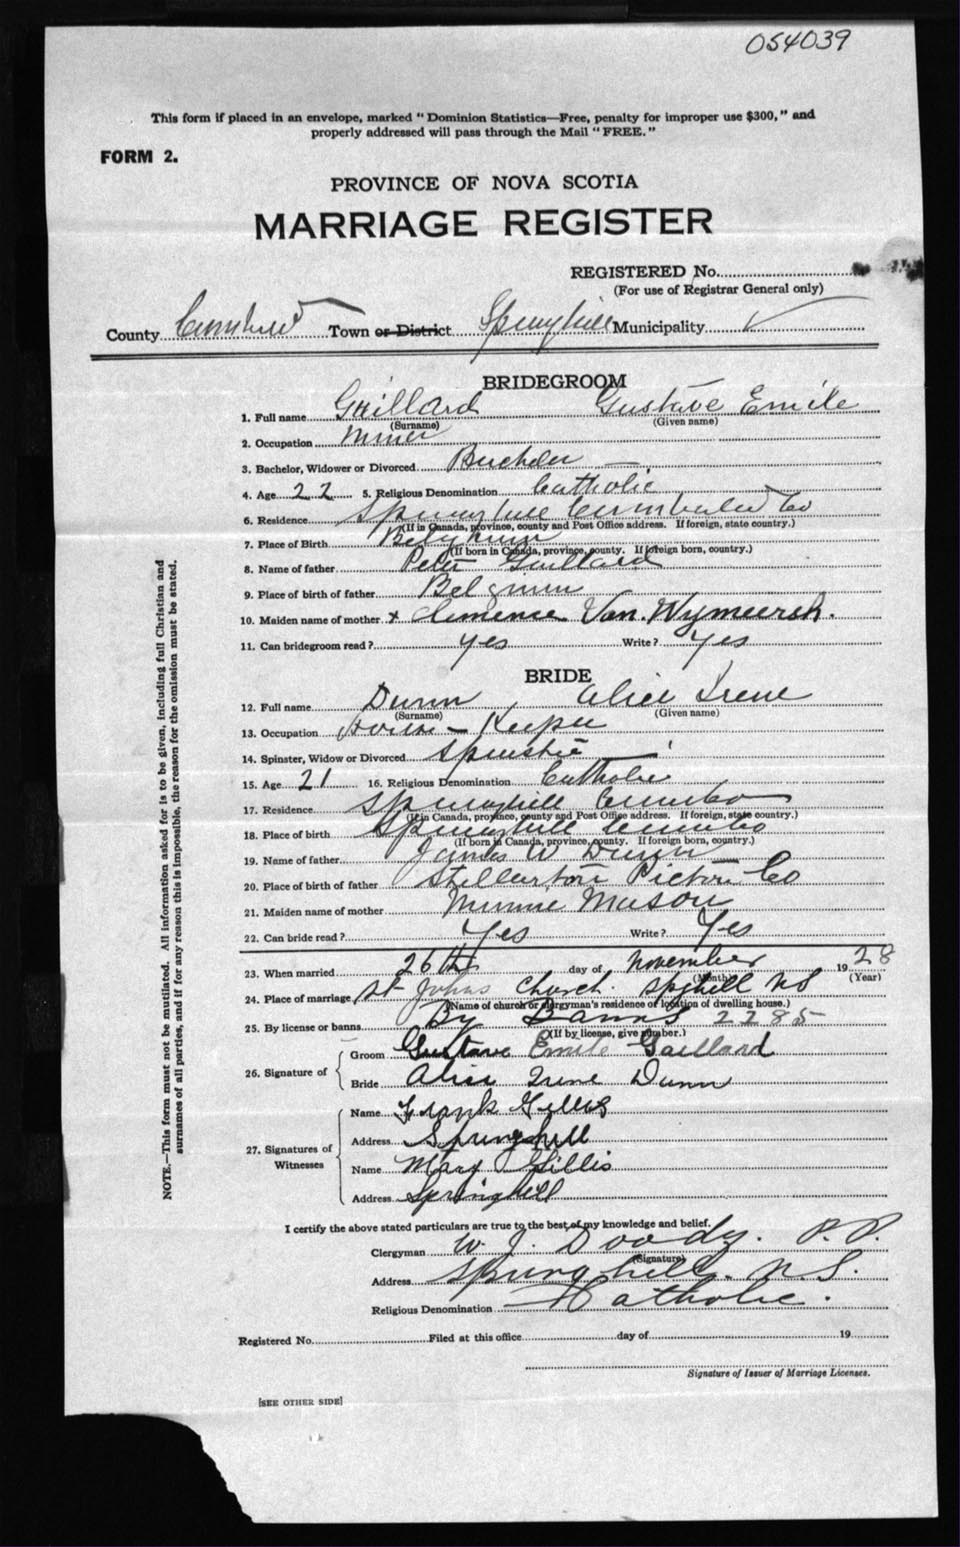 054039
This form if placed in an envelope, marked "Dominion Statistics—Free, penalty for improper use $300," and
properly addressed will pass through the Mail "FREE."
FORM 2.
PROVINCE OF NOVA SCOTIA
MARRIAGE REGISTER
REGISTERED No.
(For use of Registrar General only)
County Town or District Springhill Municipality
BRIDEGROOM
1. Full name Gaillard Gustave Emile
(Surname) (Given name)
2. Occupation Miner
3. Bachelor, Widower or Divorced Bachelor —
4. Age 22 5. Religious Denomination Catholic
6. Residence Springhill Cumberland Co
(If in Canada, province, county and Post Office address. If foreign, state country.)
7. Place of Birth Belgium
(If born in Canada, province, county. If foreign born, country.)
8. Name of father Peter Gaillard
9. Place of birth of father Belgium
10. Maiden name of mother x Clemence Van. Wymeersh.
11. Can bridegroom read? yes Write? yes
BRIDE
12. Full name Dunn Alice Irene
(Surname) (Given name)
13. Occupation House-Keeper
14. Spinster, Widow or Divorced Spinster
15. Age 21 16. Religious Denomination Catholic
17. Residence Springhill Cumb Co
(If in Canada, province, county and Post Office address. If foreign, state country.)
18. Place of birth Springhill Cumb Co
(If born in Canada, province, county. If foreign born, country.)
19. Name of father James W Dunn
20. Place of birth of father Stellarton Pictou Co
21. Maiden name of mother Minnie Mason
22. Can bride read? Yes Write? Yes
23. When married 26th day of November 1928
(Month) (Year)
24. Place of marriage St Johns Church. Sphill NS
(Name of church or clergyman's residence of location of dwelling house.)
25. By license or banns By Banns 2285
(If by license, give number.)
26. Signature of Groom Gustave Emile Gaillard
Bride Alice Irene Dunn
27. Signatures of Witnesses Name Frank Gillis
Address Springhill
Name Mary Gillis
Address Springhill
I certify the above stated particulars are true to the best of my knowledge and belief.
Clergyman W. J. Doody. P.P.
(Signature)
Address Springhill. N.S.
Religious Denomination Catholic.
Registered No. Filed at this office day of 19
Signature of Issuer of Marriage Licenses.
[SEE OTHER SIDE]
NOTE.—This form must not be mutilated. All information asked for is to be given, including full Christian and
surnames of all parties, and if for any reason this is impossible, the reason for the omission must be stated.